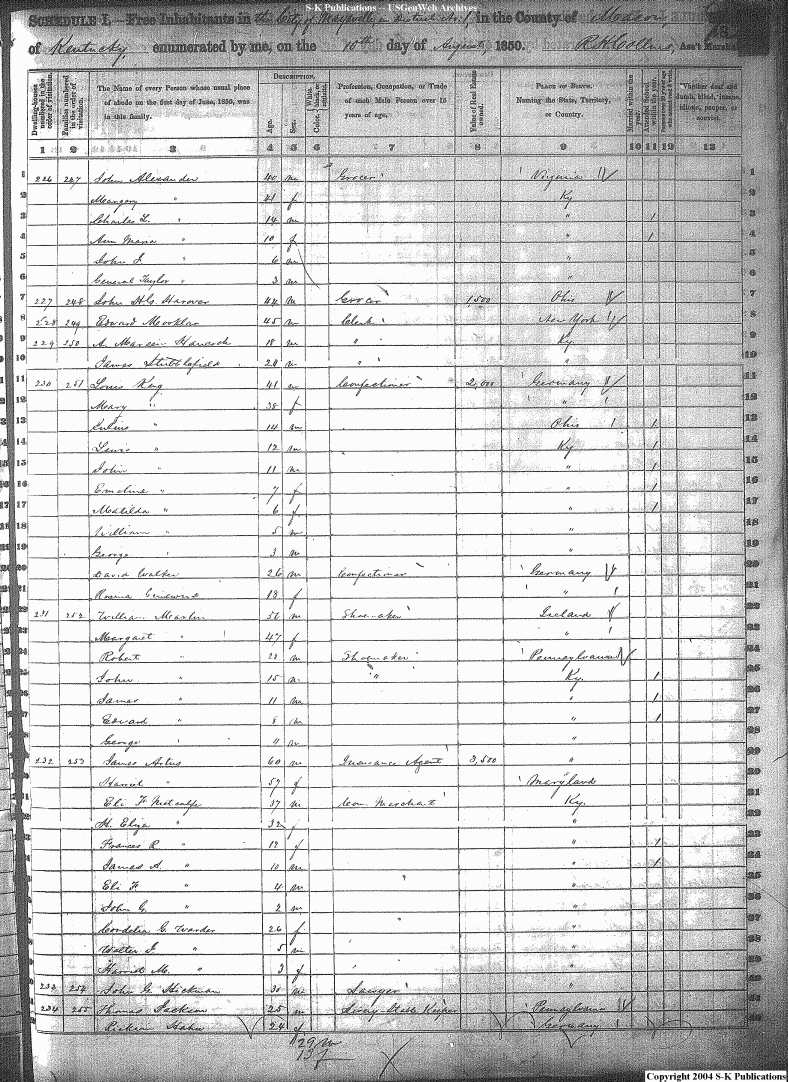 S-K Publications – USGenWeb Archives
SCHEDULE I.—Free Inhabitants in the City of Maysville, in District No. 1, in the County of Mason
of Kentucky, enumerated by me, on the 10th day of August, 1850. R H Collins, Ass't Marshal
DESCRIPTION.
Dwelling-houses numbered in the order of visitation.
Families numbered in the order of visitation.
The Name of every Person whose usual place of abode on the first day of June, 1850, was in this family.
Age.
Sex.
Color, White, black, or mulatto.
Profession, Occupation, or Trade of each Male Person over 15 years of age.
Value of Real Estate owned.
PLACE OF BIRTH. Naming the State, Territory, or Country.
Married within the year.
Attended School within the year.
Whether deaf and dumb, blind, insane, idiotic, pauper, or convict.
1 2 3 4 5 6 7 8 9 10 11 12 13
1 226 247 John Alexander 40 m Grocer Virginia 1
2 Margery " 41 f Ky 2
3 Charles L. " 14 m " 1 3
4 Ann Maria " 10 f " 1 4
5 John J. " 6 m " 5
6 General Taylor " 3 m " 6
7 227 248 John H. 44 m Grocer 1,500 Ohio 7
8 228 249 Edward 45 m Clerk New York 8
9 229 250 A. Hancock 18 m " Ky 9
10 James Stubblefield 20 m " " 10
11 230 251 Louis King 41 m Confectioner 2,000 Germany 11
12 Mary " 38 f " 12
13 Julius " 14 m Ohio 1 13
14 Lewis " 12 m Ky 1 14
15 John " 11 m " 1 15
16 Emeline " 7 f " 1 16
17 Matilda " 6 f " 1 17
18 William " 5 m " 18
19 George " 3 m " 19
20 David Walker 26 m Confectioner Germany 20
21 Rosina 18 f " 21
22 231 252 William Martin 56 m Shoemaker Ireland 22
Margaret " 47 f "
24 Robert " 22 m Shoemaker Pennsylvania 24
25 John " 15 m " Ky. 1 25
26 James " 11 m " 1 26
27 Edward " 8 m " 1 27
28 George " m " 28
29 232 253 James Artus 60 m Insurance Agent 3,500 " 29
Harriet " 57 f Maryland
Eli F Metcalfe 37 m Com. Merchant Ky.
H. Eliza " 32 f "
Frances R " 12 f " 1
James A. " 10 m " 1
Eli F " 4 m "
John G. " 2 m "
Cordelia C. Warder 26 f "
Walter J. " 5 m "
Harriet M. " 3 f "
233 254 John G. Hickman 30 m Lawyer "
234 255 Thomas Jackson 25 m Livery Stable Keeper Pennsylvania
Hahn 24 f Germany
29 m
13 f
Copyright 2004 S-K Publications